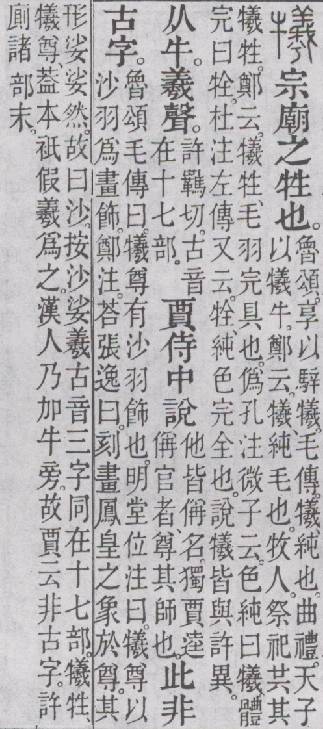 犧 宗廟之牲也。
魯頌。享以騂犧。毛傳。犧純也。曲禮。天子
以犧牛。鄭云。犧純毛也。牧人。祭祀共其
犧牲。鄭云。犧牲、毛羽完具也。僞孔注微子云。色純曰犧。體
完曰牷。杜注左傳又云。牷、純色完全也。說犧皆與許異。
从牛。羲聲。
許羈切。古音
在十七部。
賈侍中說
他皆偁名。獨賈逵
偁官者、尊其師也。
此非
古字。
魯頌毛傳曰。犧尊有沙羽飾也。明堂位注曰。犧尊以
沙羽爲畫飾。鄭注荅張逸曰。刻畫鳳皇之象於尊。其
形娑娑然。故曰沙。按沙娑羲古音三字同在十七部。犧牲、
犧尊、蓋本祇假羲爲之。漢人乃加牛旁。故賈云非古字。許
廁諸部末。